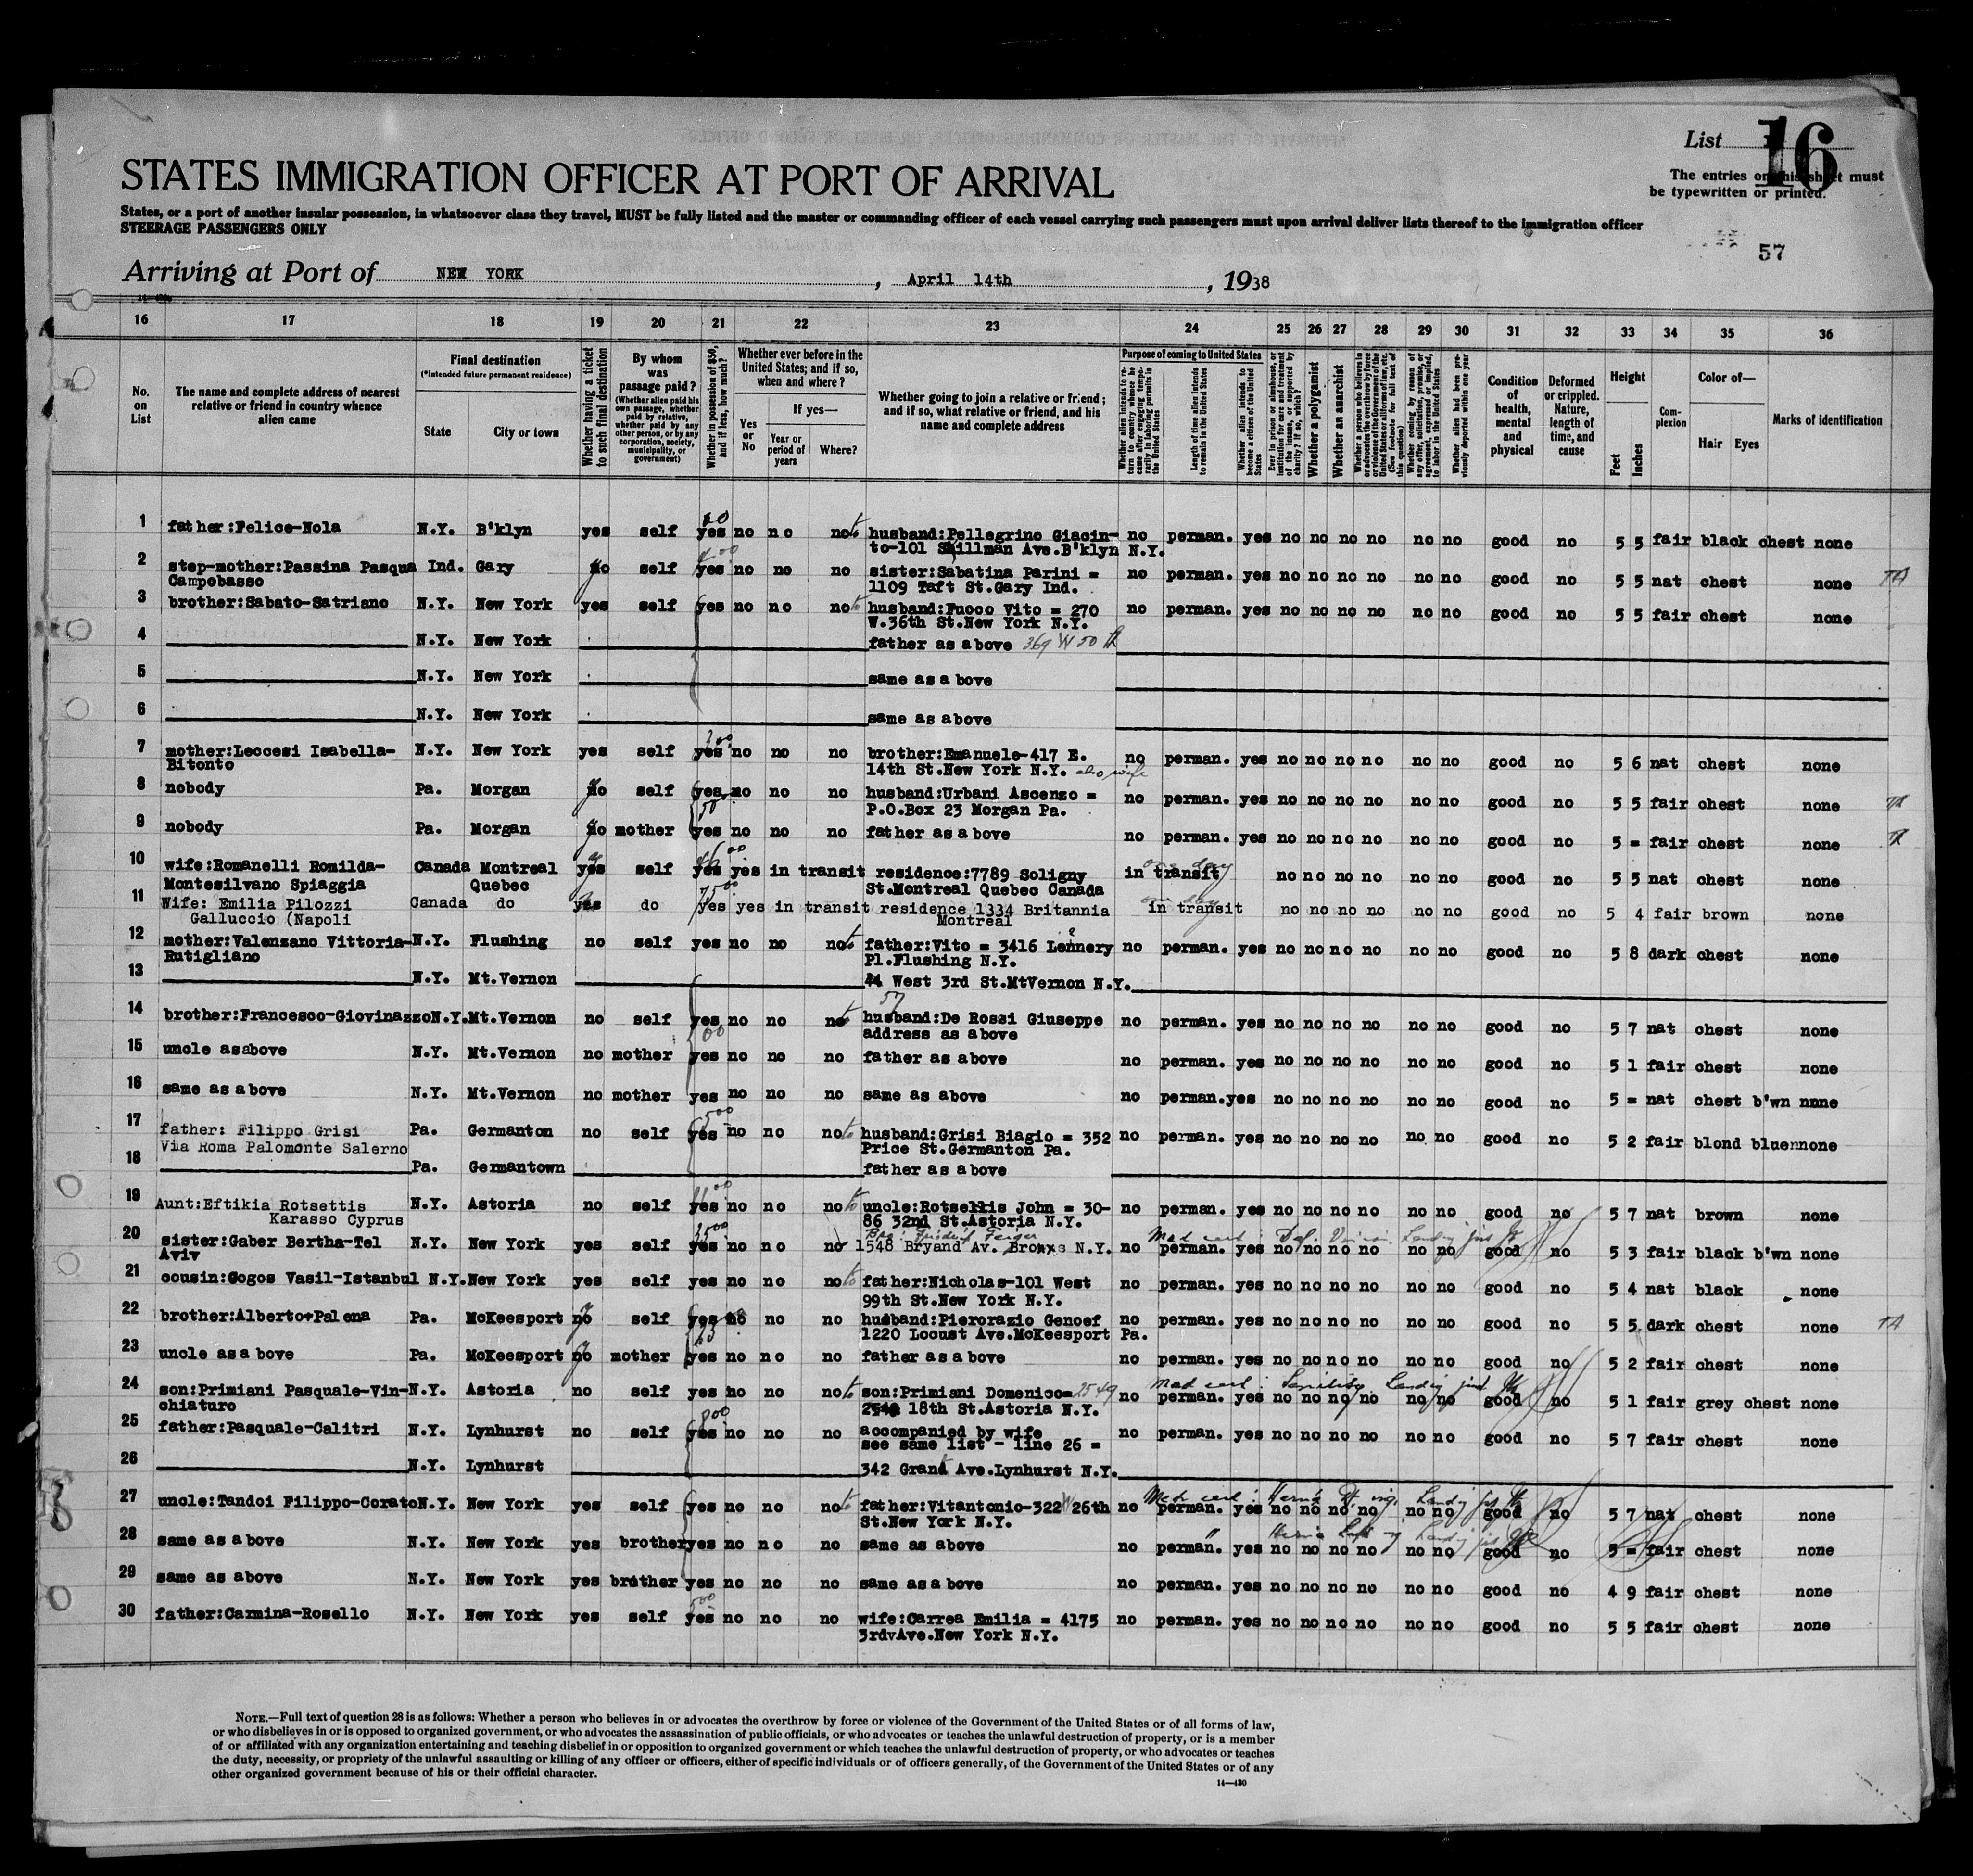 List 16
The entries on this sheet must
be typewritten or printed.
STATES IMMIGRATION OFFICER AT PORT OF ARRIVAL
States, or a port of another insular possession, in whatsoever class they travel, MUST be fully listed and the master or commanding officer of each vessel carrying such passengers must upon arrival deliver lists thereof to the immigration officer
STEERAGE PASSENGERS ONLY
57
Arriving at Port of NEW YORK, April 14th, 1938
16 17 18 19 20 21 22 23 24 25 26 27 28 29 30 31 32 33 34 35 36
No. on List
The name and complete address of nearest relative or friend in country whence alien came
Final destination
(*Intended future permanent residence)
State City or town
Whether having a ticket to such final destination
By whom was passage paid?
(Whether alien paid his own passage, whether paid by relative, whether paid by any other person, or by any corporation, society, municipality, or government)
Whether in possession of $50, and if less, how much?
Whether ever before in the United States; and if so, when and where?
Yes or No
If yes—
Year or period of years
Where?
Whether going to join a relative or friend; and if so, what relative or friend, and his name and complete address
Purpose of coming to United States
Whether alien intends to return to country whence he came after engaging temporarily in laboring pursuits in the United States
Length of time alien intends to remain in the United States
Whether alien intends to become a citizen of the United States
Ever in prison or almshouse, or institution for care and treatment of the insane, or supported by charity? If so, which?
Whether a polygamist
Whether an anarchist
Whether a person who believes in or advocates the overthrow by force or violence of the Government of the United States or all forms of law, etc. (See footnote for full text of this question)
Whether coming by reason of any offer, solicitation, promise, or agreement, expressed or implied, to labor in the United States
Whether alien had been previously deported within one year
Condition of health, mental and physical
Deformed or crippled. Nature, length of time, and cause
Height
Feet Inches
Complexion
Color of—
Hair Eyes
Marks of identification
1 father:Felice-Nola N.Y. B'klyn yes self yes no no no husband:Pellegrino Giacin- no perman. yes no no no no no no good no 5 5 fair black chest none
to-101 Skillman Ave.B'klyn N.Y.
2 step-mother:Passina Pasqua Ind. Gary no self yes no no no sister:Sabatina Parini = no perman. yes no no no no no no good no 5 5 nat chest none TA
Campobasso 1109 Taft St.Gary Ind.
3 brother:Sabato-Satriano N.Y. New York yes self yes no no no husband:Fuoco Vito = 270 no perman. yes no no no no no no good no 5 5 fair chest none
W.36th St.New York N.Y.
4 N.Y. New York father as above 369 W 50 th
5 N.Y. New York same as a bove
6 N.Y. New York same as above
7 mother:Leccesi Isabella- N.Y. New York yes self yes no no no brother:Emanuele-417 E. no perman. yes no no no no no no good no 5 6 nat chest none
Bitonto 14th St.New York N.Y. also wife
8 nobody Pa. Morgan no self yes no no no husband:Urbani Ascenzo = no perman. yes no no no no no no good no 5 5 fair chest none TA
P.O.Box 23 Morgan Pa.
9 nobody Pa. Morgan no mother yes no no no father as a bove no perman. yes no no no no no no good no 5 = fair chest none TA
10 wife:Romanelli Romilda- Canada Montreal yes self yes yes in transit residence:7789 Soligny in transit one day no no no no no no good no 5 5 nat chest none
Montesilvano Spiaggia Quebec St.Montreal Quebec Canada
11 Wife: Emilia Pilozzi Canada do yes do yes yes in transit residence 1334 Britannia in transit no no no no no no good no 5 4 fair brown none
Galluccio (Napoli Montreal
12 mother:Valenzano Vittoria- N.Y. Flushing no self yes no no no father:Vito = 3416 Lennery no perman. yes no no no no no no good no 5 8 dark chest none
Rutigliano Pl.Flushing N.Y.
13 N.Y. Mt.Vernon 44 West 3rd St.MtVernon N.Y.
57
14 brother:Francesco-Giovinazzo N.Y. Mt.Vernon no self yes no no no husband:De Rossi Giuseppe no perman. yes no no no no no no good no 5 7 nat chest none
address as above
15 uncle asabove N.Y. Mt.Vernon no mother yes no no no father as above no perman. yes no no no no no no good no 5 1 fair chest none
16 same as above N.Y. Mt.Vernon no mother yes no no no same as above no perman.yes no no no no no no good no 5 = nat chest b'wn none
17 father: Filippo Grisi Pa. Germanton no self yes no no no husband:Grisi Biagio = 352 no perman. yes no no no no no no good no 5 2 fair blond blue none
Via Roma Palomonte Salerno Price St.Germanton Pa.
18 Pa. Germantown father as a bove
19 Aunt:Eftikia Rotsettis N.Y. Astoria no self yes no no no uncle:Rotsettis John = 30- no perman. yes no no no no no no good no 5 7 nat brown none
Karasso Cyprus 86 32nd St.Astoria N.Y.
20 sister:Gaber Bertha-Tel N.Y. New York yes self yes no no no 1548 Bryand Av. Bronxs N.Y. no perman. yes no no no no no no good no 5 3 fair black b'wn none
Aviv
21 cousin:Gogos Vasil-Istanbul N.Y. New York yes self yes no no no father:Nicholas-101 West no perman. yes no no no no no no good no 5 4 nat black none
99th St.New York N.Y.
22 brother:Alberto+Palena Pa. McKeesport no self yes no no no husband:Pierorazio Genoef no perman. yes no no no no no no good no 5 5 dark chest none TA
1220 Locust Ave.McKeesport Pa.
23 uncle as a bove Pa. McKeesport no mother yes no no no father as a bove no perman. yes no no no no no no good no 5 2 fair chest none
24 son:Primiani Pasquale-Vin- N.Y. Astoria no self yes no no no son:Primiani Domenico= 2549 no perman. yes no no no no no no good no 5 1 fair grey chest none
chiaturo 18th St.Astoria N.Y.
Med cert: Senility
25 father:Pasquale-Calitri N.Y. Lynhurst no self yes no no no accompanied by wife no perman. yes no no no no no no good no 5 7 fair chest none
see same list - line 26 =
26 N.Y. Lynhurst 342 Grant Ave.Lynhurst N.Y.
27 uncle:Tandoi Filippo-Corato N.Y. New York yes self yes no no no father:Vitantonio-322 W 26th no perman. yes no no no no no no good no 5 7 nat chest none
St.New York N.Y.
28 same as a bove N.Y. New York yes brother yes no no no same as above no perman. yes no no no no no no good no 5 = fair chest none
29 same as above N.Y. New York yes brother yes no no no same as a bove no perman. yes no no no no no no good no 4 9 fair chest none
30 father:Carmina-Rosello N.Y. New York yes self yes no no no wife:Carrea Emilia = 4175 no perman. yes no no no no no no good no 5 5 fair chest none
3rdvAve.New York N.Y.
NOTE.—Full text of question 28 is as follows: Whether a person who believes in or advocates the overthrow by force or violence of the Government of the United States or of all forms of law,
or who disbelieves in or is opposed to organized government, or who advocates the assassination of public officials, or who advocates or teaches the unlawful destruction of property, or is a member
of or affiliated with any organization entertaining and teaching disbelief in or opposition to organized government or which teaches the unlawful destruction of property, or who advocates or teaches
the duty, necessity, or propriety of the unlawful assaulting or killing of any officer or officers, either of specific individuals or of officers generally, of the Government of the United States or of any
other organized government because of his or their official character.
14—430